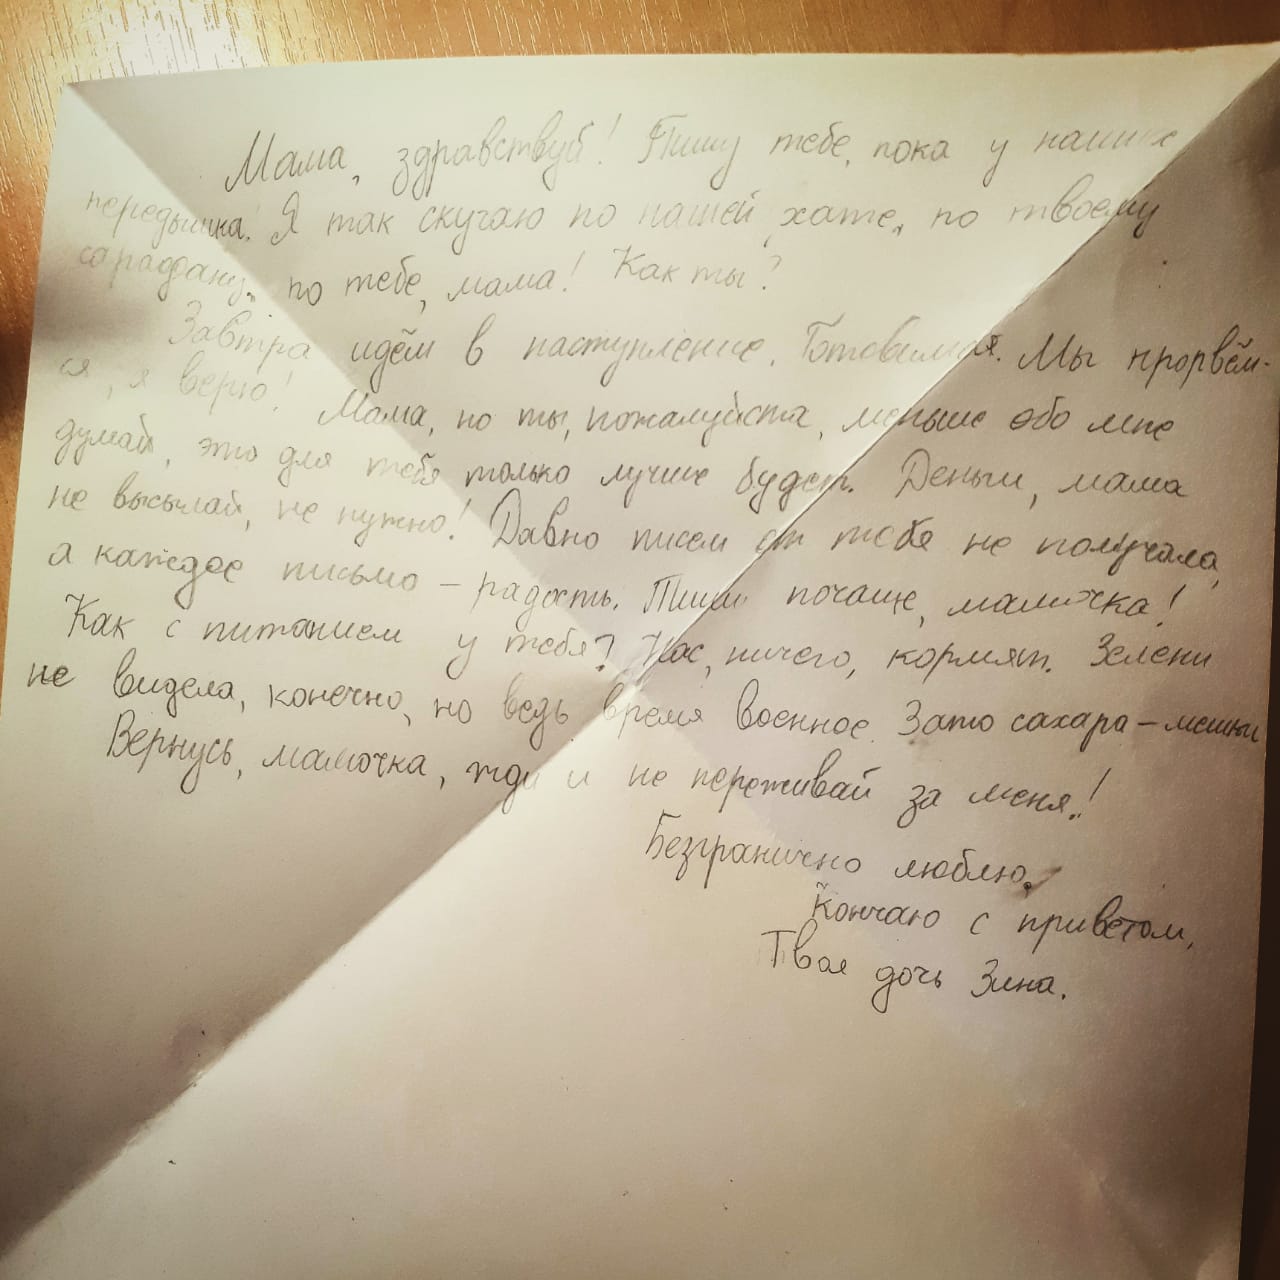 Мама, здравствуй! Пишу тебе, пока у наших
передышка! Я так скучаю по нашей хате, по твоему
сарафану, по тебе, мама! Как ты?
Завтра идём в наступление. Готовимся. Мы прорвём-
ся, я верю! Мама, но ты, пожалуйста, меньше обо мне
думай, это для тебя только лучше будет. Деньги, мама
не высылай, не нужно! Давно писем от тебя не получала,
а каждое письмо – радость. Пиши почаще, мамочка!
Как с питанием у тебя? Нас, ничего, кормят. Зелени
не видела, конечно, но ведь время военное. Зато сахара – мешки
Вернусь, мамочка, жди и не переживай за меня!
Безгранично люблю,
Кончаю с приветом,
Твоя дочь Зина.